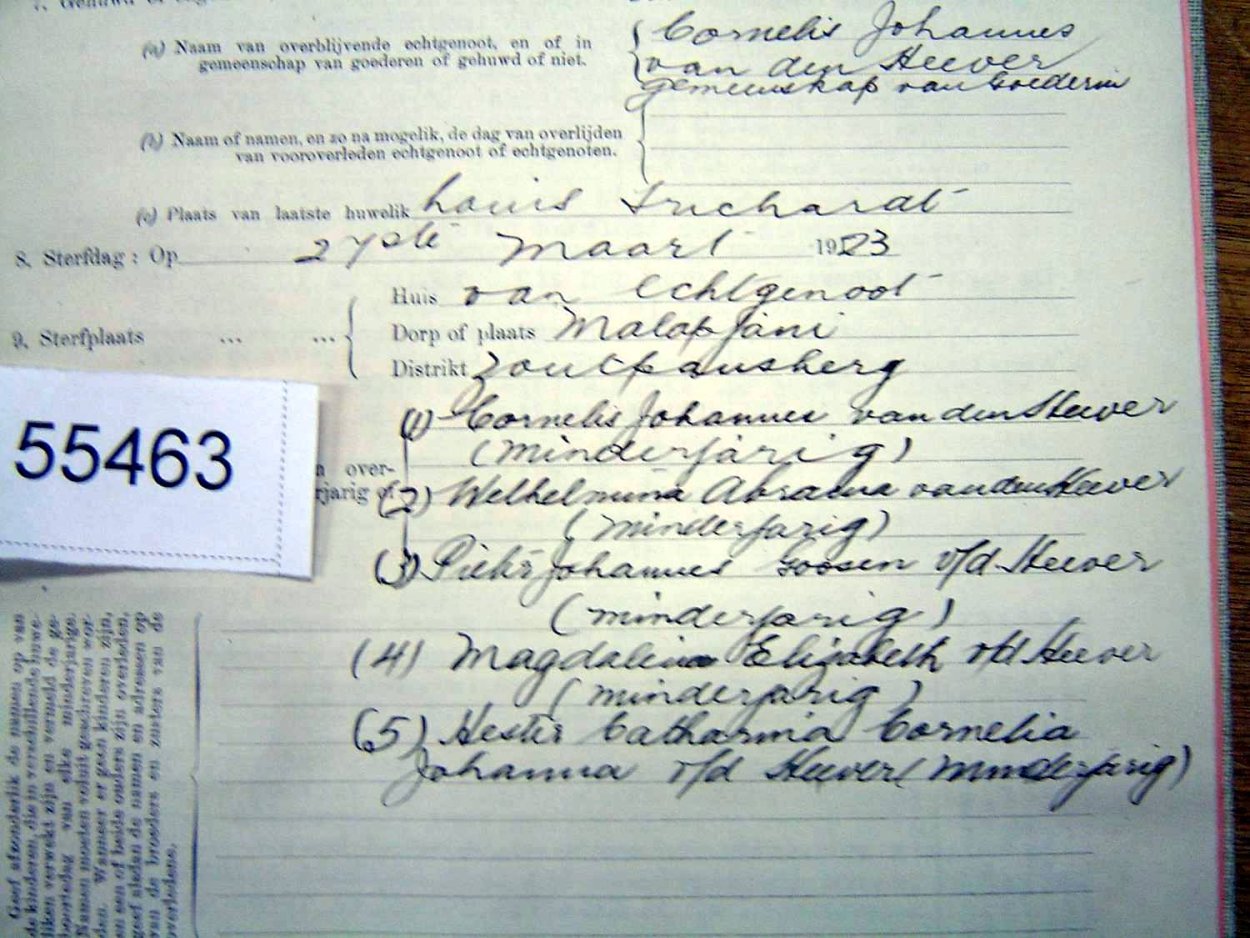 (a) Naam van overblijvende echtgenoot, en of in
gemeenschap van goederen of gehuwd of niet.
Cornelis Johannes
van den Heever
gemeenskap van Goederen
(b) Naam of namen, en zo na mogelik, de dag van overlijden
van vooroverleden echtgenoot of echtgenoten.
(c) Plaats van laatste huwelik Louis Trichardt
8. Sterfdag : Op 27ste Maart 1923
Huis van Echtgenoot
9. Sterfplaats ... ... Dorp of plaats Malapjani
Distrikt Zoutpansberg
55463
n over-
rjarig of
(1) Cornelis Johannes van den Heever
(minderjarig)
(2) Welhelmina Abrama van den Heever
(minderjarig)
(3) Pieter Johannes Goosen v/d Heever
(minderjarig)
(4) Magdalena Elizabeth v/d Heever
(minderjarig)
(5) Hester Catharina Cornelia
Johanna v/d Heever (minderjarig)
Geef afzonderlik de namen op van
de kinderen, die in verschillende huwe-
liken verwekt zijn en vermeld de ge-
boortedag van elke minderjarige.
Namen moeten voluit geschreven wor-
den. Wanneer er geen kinderen zijn,
en een of beide ouders zijn overleden,
geef aldan de namen en adressen op
van de broeders en zusters van de
overledene.